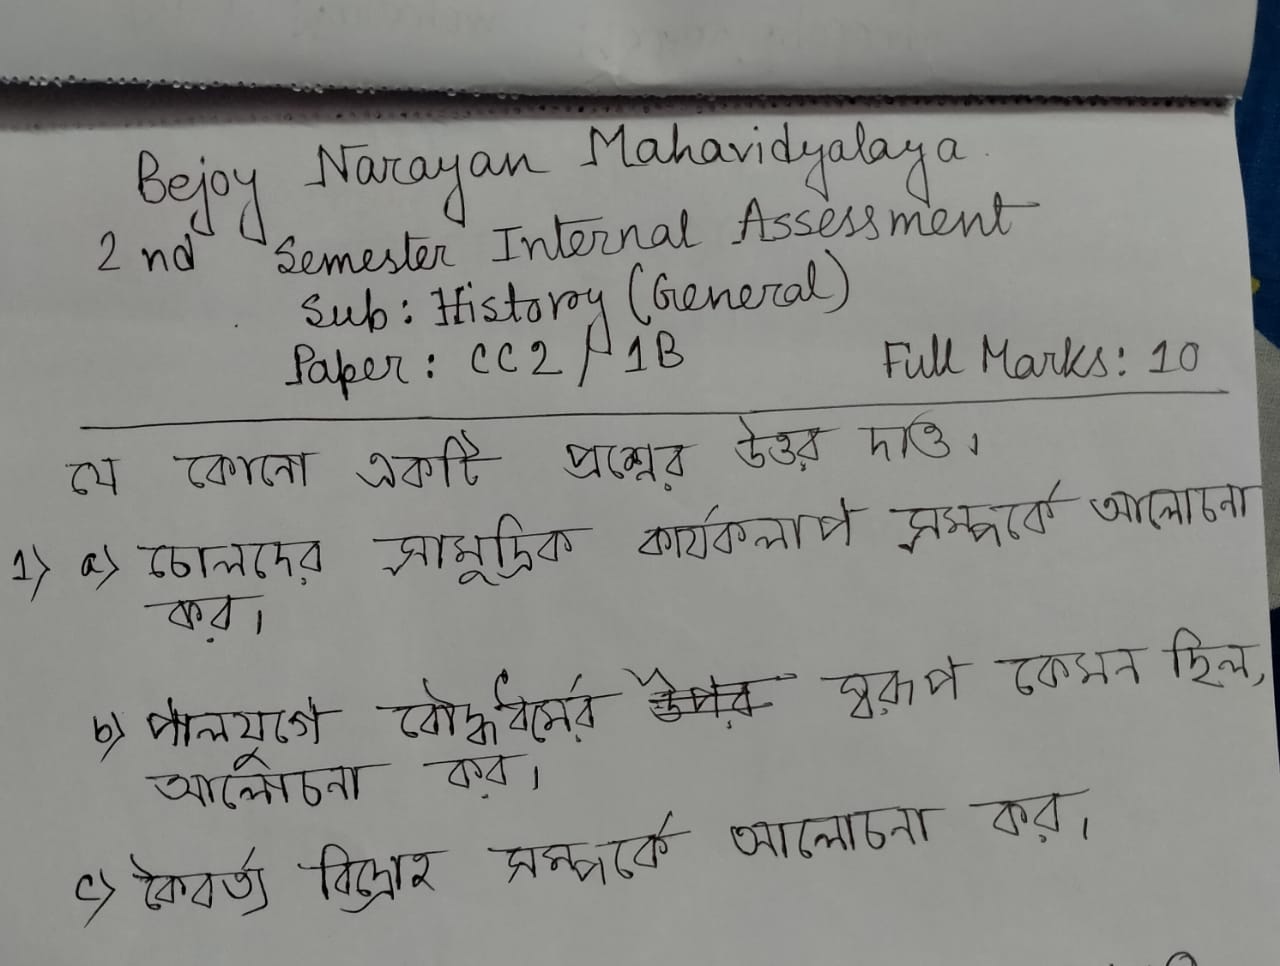 Bejoy Narayan Mahavidyalaya
2nd Semester Internal Assessment
Sub: History (General)
Paper: CC2/1B Full Marks: 10
যে কোনো একটি প্রশ্নের উত্তর দাও।
1) a) চোলদের সামুদ্রিক কার্যকলাপ সম্পর্কে আলোচনা
কর।
b) পালযুগে বৌদ্ধধর্মের উপর স্বরূপ কেমন ছিল,
আলোচনা কর।
c) কৈবর্ত্য বিদ্রোহ সম্পর্কে আলোচনা কর।